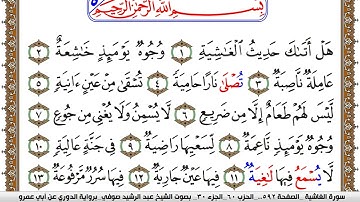 بِسْمِ ٱللَّهِ ٱلرَّحْمَٰنِ ٱلرَّحِيمِ
هَلْ أَتَىٰكَ حَدِيثُ ٱلْغَٰشِيَةِ ١ وُجُوهٌ يَوْمَئِذٍ خَٰشِعَةٌ ٢
عَامِلَةٌ نَّاصِبَةٌ ٣ تُصْلَىٰ نَارًا حَامِيَةً ٤ تُسْقَىٰ مِنْ عَيْنٍ ءَانِيَةٍ ٥
لَّيْسَ لَهُمْ طَعَامٌ إِلَّا مِن ضَرِيعٍ ٦ لَّا يُسْمِنُ وَلَا يُغْنِى مِن جُوعٍ ٧
وُجُوهٌ يَوْمَئِذٍ نَّاعِمَةٌ ٨ لِّسَعْيِهَا رَاضِيَةٌ ٩ فِى جَنَّةٍ عَالِيَةٍ ١٠
لَّا يُسْمَعُ فِيهَا لَٰغِيَةٌ ١١ فِيهَا عَيْنٌ جَارِيَةٌ ١٢ فِيهَا سُرُرٌ مَّرْفُوعَةٌ ١٣
سورة الغاشية . الصفحة ٥٩٢ .. الحزب ٦٠ . الجزء ٣٠ . بصوت الشيخ عبد الرشيد صوفي برواية الدوري عن أبي عمرو